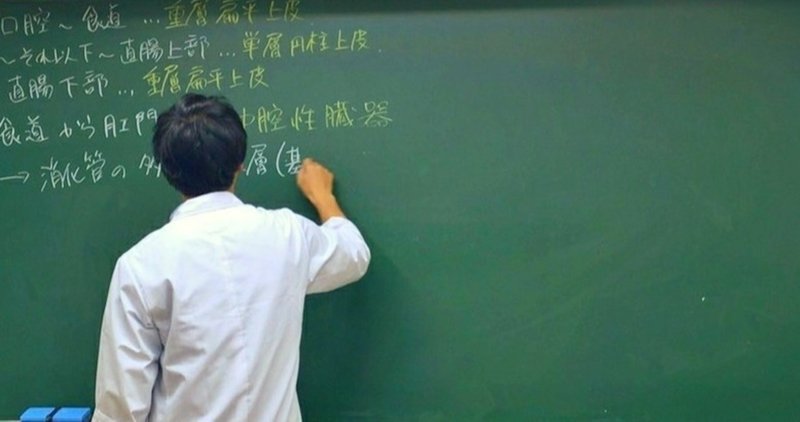 口腔～食道 …重層扁平上皮
～それ以下～直腸上部…単層円柱上皮
直腸下部…重層扁平上皮
食道から肛門 腔性臓器
→消化管の 層(基